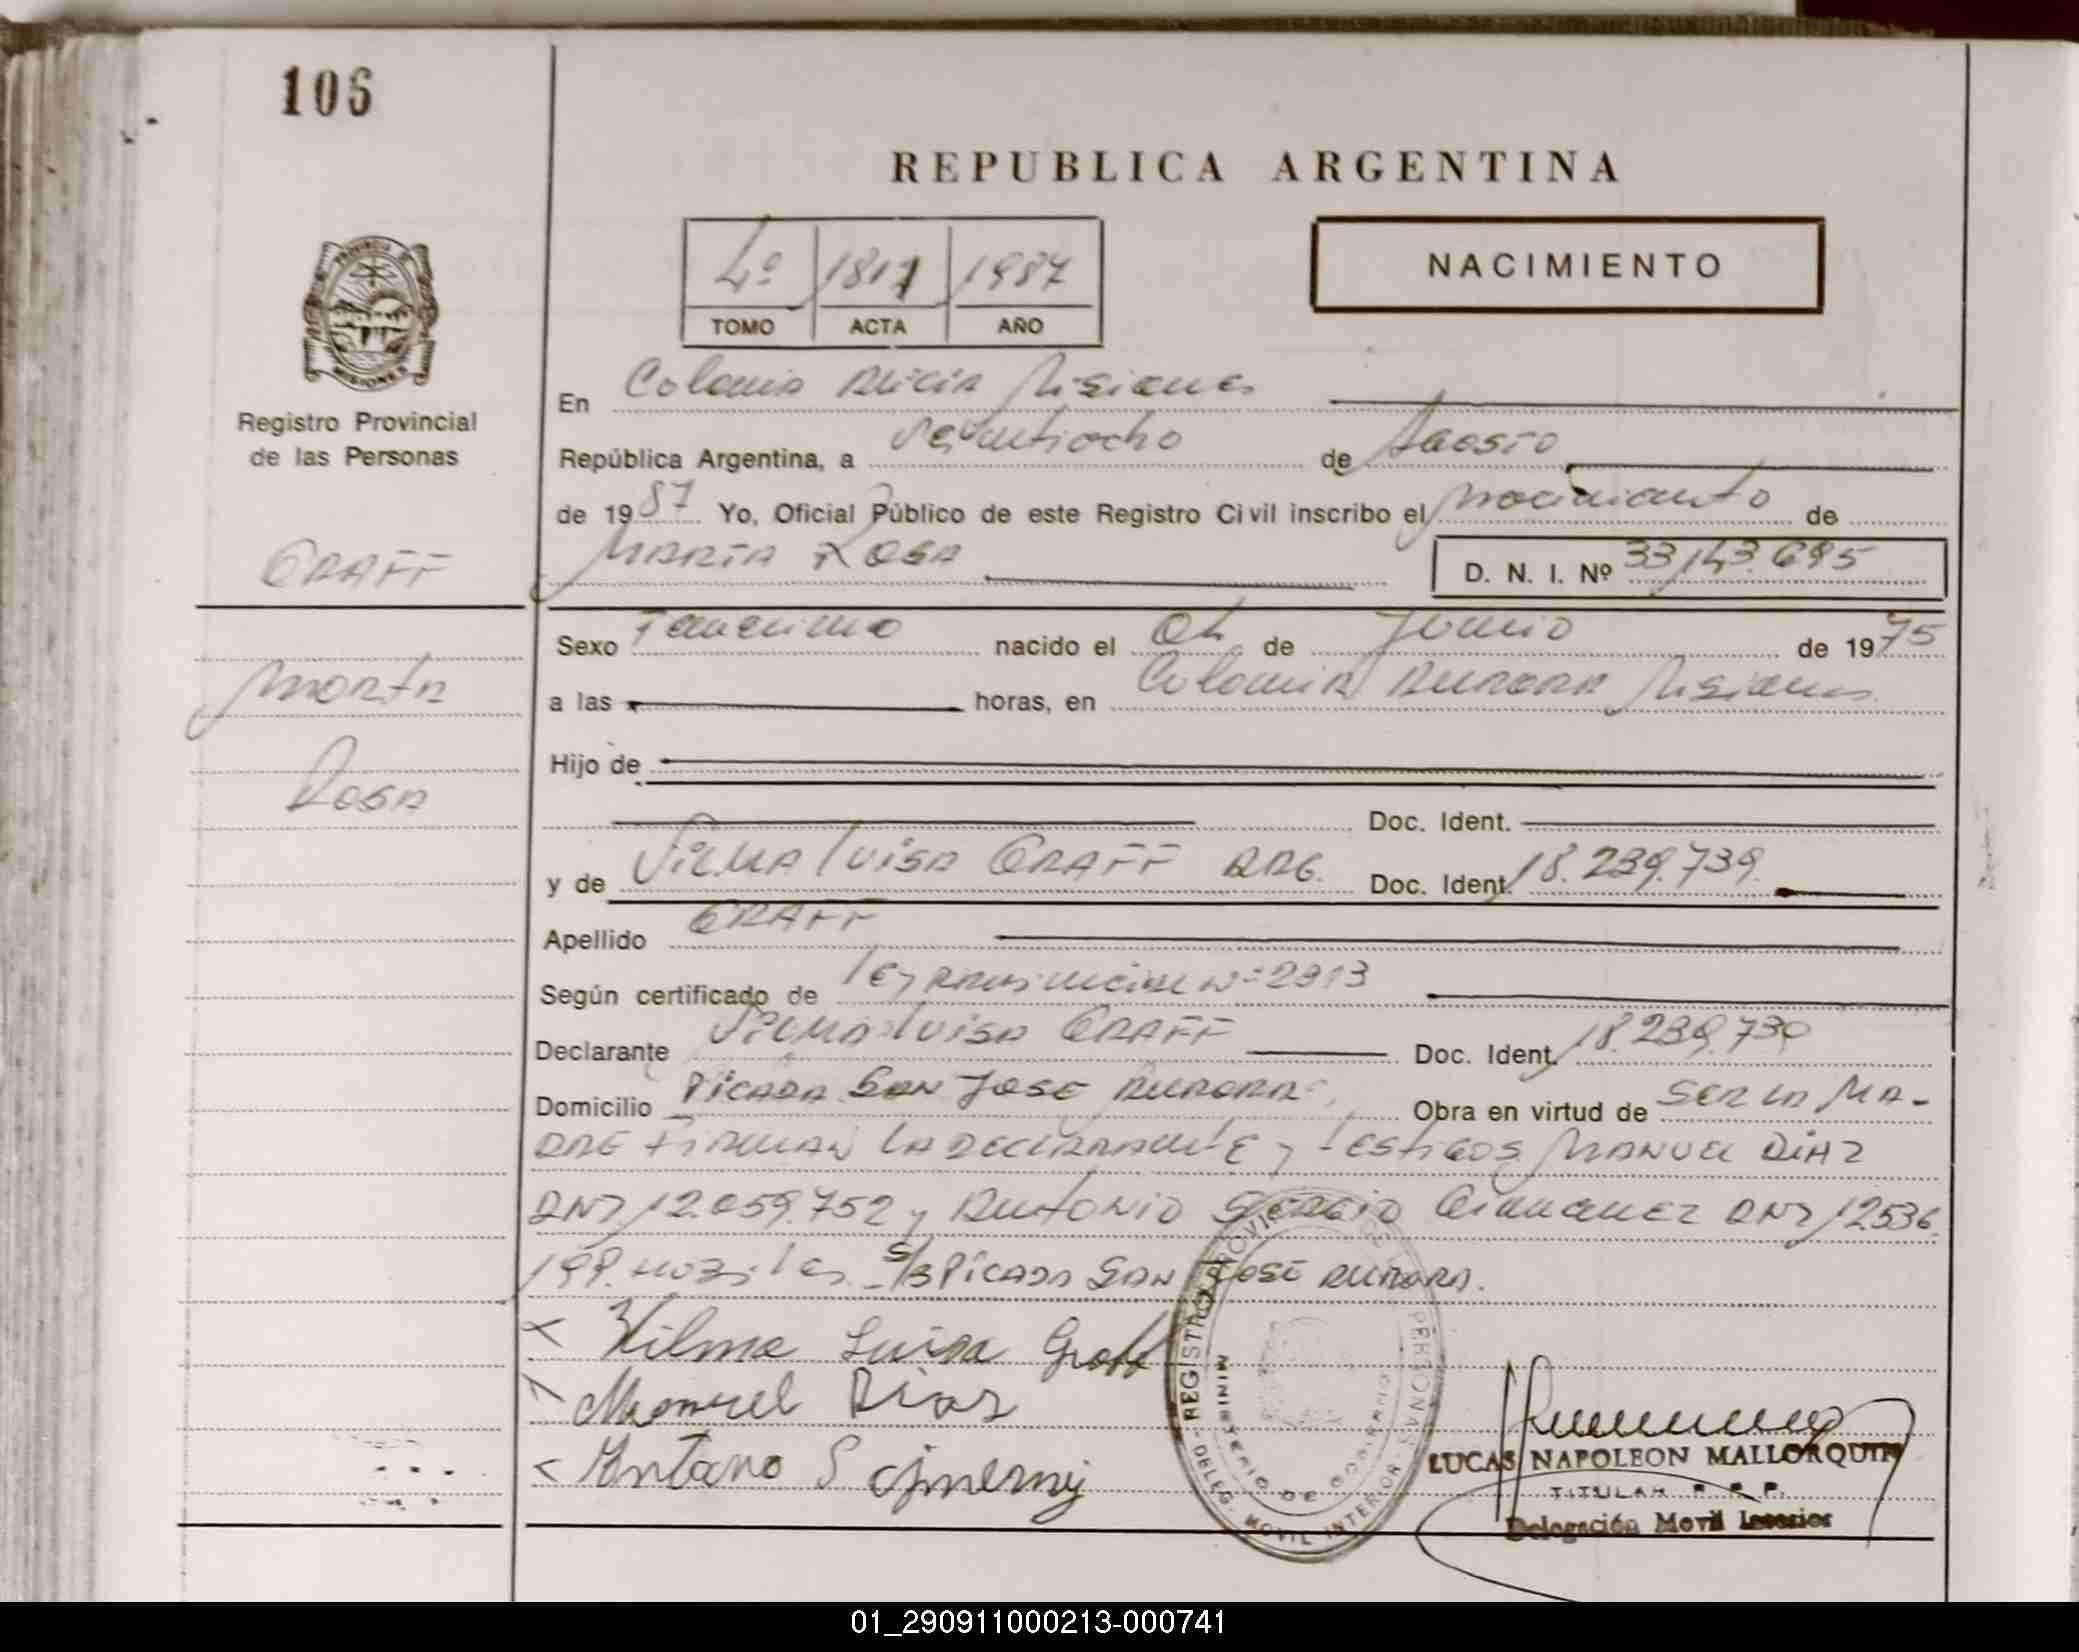 106
REPUBLICA ARGENTINA
4º 1811 1987
TOMO ACTA AÑO
NACIMIENTO
PROVINCIA DE MISIONES
Registro Provincial
de las Personas
En Colonia Alicia Misiones
República Argentina, a Veintiocho de Agosto
de 1987 Yo, Oficial Público de este Registro Civil inscribo el nacimiento de
GRAFF
MARTA ROSA D. N. I. Nº 33.143.695
Sexo Femenino nacido el 04 de Junio de 1975
Marta
a las horas, en Colonia Aurora Misiones
Rosa
Hijo de
Doc. Ident.
y de Vilma Luisa GRAFF ARG. Doc. Ident. 18.239.739
Apellido GRAFF
Según certificado de Ley Provincial Nº 2913
Declarante Vilma Luisa GRAFF Doc. Ident. 18.239.739
Domicilio Picada San José Aurora Obra en virtud de ser la ma-
dre Firman la declarante y testigos Manuel Diaz
DNI 12.059.752 y Antonio Sergio Gimenez DNI 12536
199. S/B Picada San José Aurora.
Vilma Luisa Graff
Manuel Diaz
Antonio S Gimenez
REGISTRO PROVINCIAL DE LAS PERSONAS
MINISTERIO DE GOBIERNO
DELEG. MOVIL INTERIOR
LUCAS NAPOLEON MALLORQUIN
TITULAR R. P. P.
Delegación Movil Interior
01_290911000213-000741